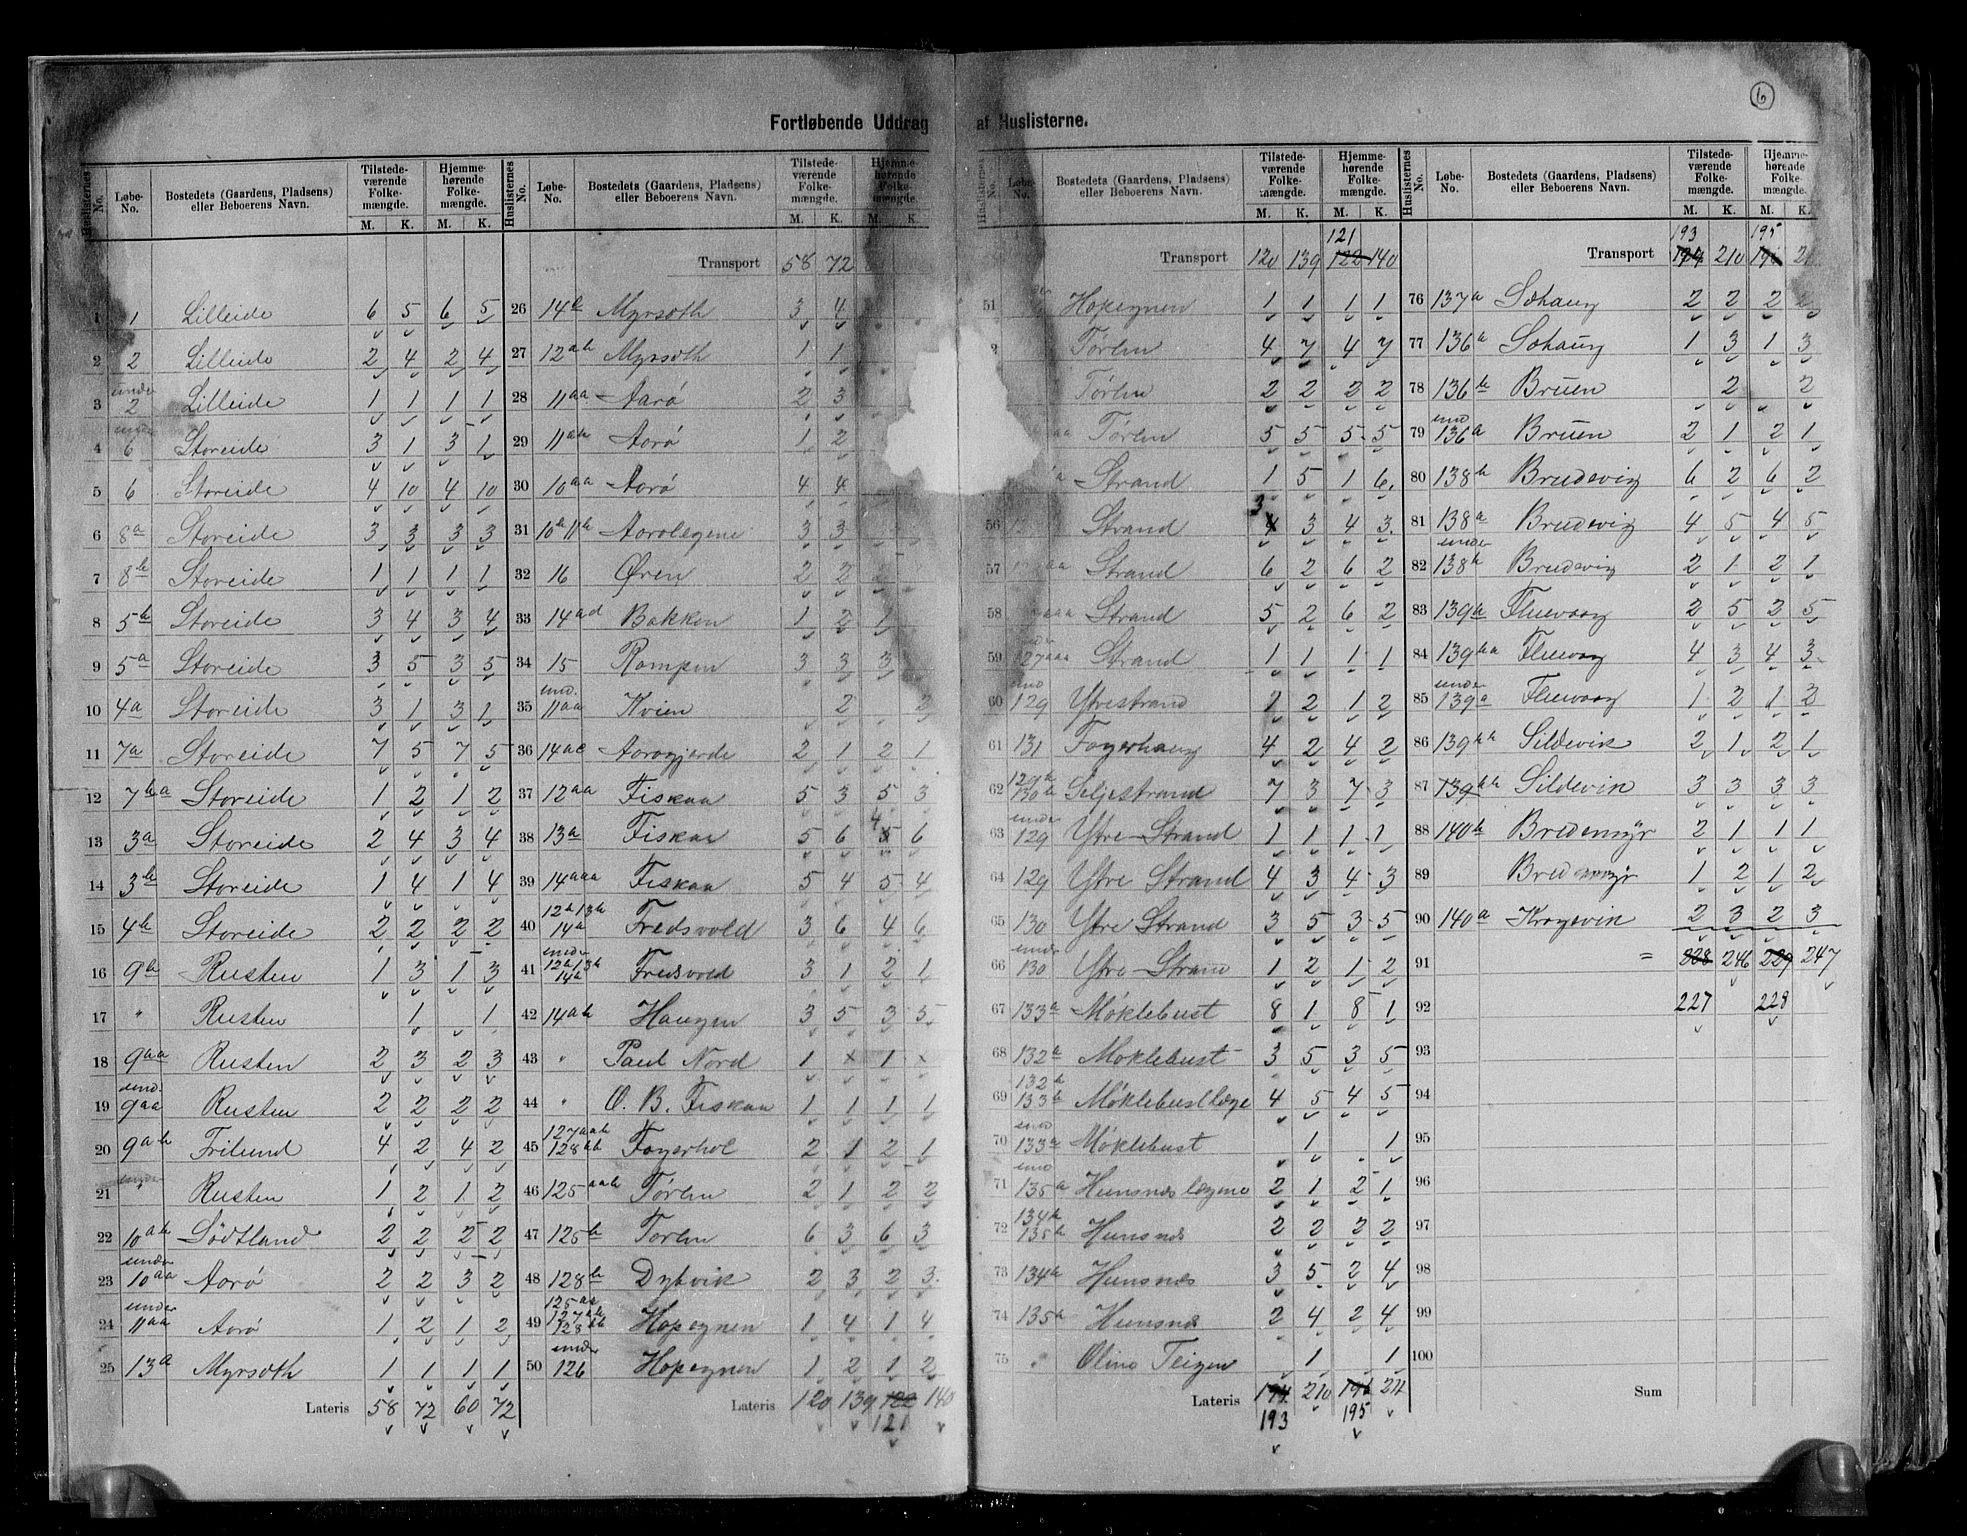 6
Fortløbende Uddrag af Huslisterne.
Huslisternes No. Løbe-No. Bostedets (Gaardens, Pladsens) eller Beboerens Navn. Tilstedeværende Folkemængde. Hjemmehørende Folkemængde.
M. K. M. K.
1 1 Lilleide 6 5 6 5
2 2 Lilleide 2 4 2 4
3 under 2 Lilleide 1 1 1 1
4 under 6 Storeide 3 1 3 1
5 6 Storeide 4 10 4 10
6 8a Storeide 3 3 3 3
7 8b Storeide 1 1 1 1
8 5b Storeide 3 4 3 4
9 5a Storeide 3 5 3 5
10 4a Storeide 3 1 3 1
11 7a Storeide 7 5 7 5
12 7ba Storeide 1 2 1 2
13 3a Storeide 2 4 3 4
14 3b Storeide 1 4 1 4
15 4b Storeide 2 2 2 2
16 9b Rusten 1 3 1 3
17 " Rusten 1 1
18 9aa Rusten 2 3 2 3
19 und. 9aa Rusten 2 2 2 2
20 9ab Frilund 4 2 4 2
21 under " Rusten 1 2 1 2
22 10ab Sødtland 2 2 2 2
23 under 10aa Aarø 2 2 3 2
24 under 11aa Aarø 1 2 1 2
25 13a Myrsæth 1 1 1 1
Lateris 58 72 60 72
Huslisternes No. Løbe-No. Bostedets (Gaardens, Pladsens) eller Beboerens Navn. Tilstedeværende Folkemængde. Hjemmehørende Folkemængde.
M. K. M. K.
Transport 58 72
26 14b Myrsæth 3 4
27 12ab Myrsæth 1 1
28 11aa Aarø 2 3
29 11ab Aarø 1 2
30 10aa Aarø 4 4
31 10b 11b Aarølegene 3 3
32 16 Øren 2 2
33 14ad Bakken 1 2 1
34 15 Rampen 3 3 3
35 und. 11aa Kvien 2 2
36 14ac Aarøgjerde 2 1 2 1
37 12aa Fiskaa 5 3 5 3
38 13a Fiskaa 5 6 5 4 6
39 14aaa Fiskaa 5 4 5 4
40 12b 13b 14a Fredsvold 3 6 4 6
41 under 12b 13b 14a Fredsvold 3 1 2 1
42 14ab Haugen 3 5 3 5
43 " Paul Nord 1 × 1 ×
44 " O. B. Fiskaa 1 1 1 1
45 127aab 128bb Fagerhol 2 1 2 1
46 125aab Tøren 2 1 2 2
47 125b Tøren 6 3 6 3
48 128b Dybvik 2 3 2 3
49 125aa 127ab 128 Hopegnen 1 4 1 4
50 under 126 Hopegnen 1 2 1 2
Lateris 120 139 122 140
121
Løbe-No. Bostedets (Gaardens, Pladsens) eller Beboerens Navn. Tilstedeværende Folkemængde. Hjemmehørende Folkemængde.
M. K. M. K.
121
Transport 120 139 122 140
51 Hopegnen 1 1 1 1
Tøren 4 7 4 7
Tøren 2 2 2 2
aa Tøren 5 5 5 5
Strand 1 5 1 6
56 Strand 4 3 3 4 3
57 aa Strand 6 2 6 2
58 aaa Strand 5 2 6 2
59 127aaa Strand 1 1 1 1
60 und 129 Ytrestrand 1 2 1 2
61 131 Fagerhaug 4 2 4 2
62 129b 130b Seljestrand 7 3 7 3
63 under 129 Ytre-Strand 1 1 1 1
64 129 Ytre Strand 4 3 4 3
65 130 Ytre Strand 3 5 3 5
66 under 130 Ytre-Strand 1 2 1 2
67 133a Møklebust 8 1 8 1
68 132a Møklebust 3 5 3 5
69 132b 133b Møklebustlæge 4 5 4 5
70 und 133a Møklebust 1 1
71 und 135a Hunsnæs lægene 2 1 2 1
72 134b 135b Hunsnæs 2 2 2 2
73 134a Hunsnæs 3 5 2 4
74 135a Hunsnæs 2 4 2 4
75 " Oline Teigen 1 1
Lateris 194 210 196 211
193 195
Huslisternes No. Løbe-No. Bostedets (Gaardens, Pladsens) eller Beboerens Navn. Tilstedeværende Folkemængde. Hjemmehørende Folkemængde.
M. K. M. K.
193 195
Transport 194 210 196
76 137a Søhaug 2 2 2 2
77 136a Søhaug 1 3 1 3
78 136b Bruen 2 2
79 und 136a Bruen 2 1 2 1
80 138b Brudevig 6 2 6 2
81 138a Brudevig 4 5 4 5
82 under 138b Brudevig 2 1 2 1
83 139a Fluevaag 2 5 2 5
84 139aa Fluevaag 4 3 4 3
85 under 139a Fluevaag 1 2 1 2
86 139bb Sildevik 2 1 2 1
87 139bb Sildevik 3 3 3 3
88 140b Bredemyr 2 1 1 1
89 Bredemyr 1 2 1 2
90 140a Kragevik 2 3 2 3
91 = 228 246 229 247
92 227 228
93
94
95
96
97
98
99
100
Sum